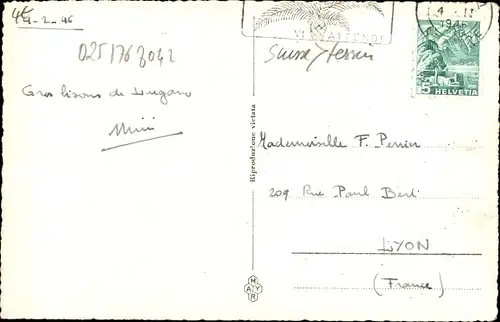 4-2-46
025/768042
Gros bisous de Lugano
Mimi
VI ATTENDE
4. II
1946
Suisse/Tessin
5 HELVETIA
Riproduzione vietata
Mademoiselle F. Perrin
209 Rue Paul Bert
LYON
(France)
MAYR